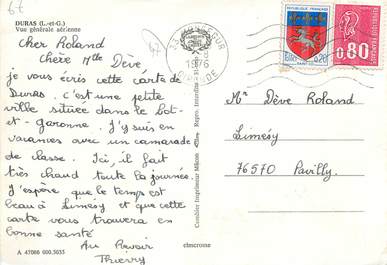 67
DURAS (L.-et-G.)
Vue générale aérienne
Cher Roland
Chère Mlle Dève
je vous écris cette carte de
Duras. c'est une petite
ville située dans le Lot-
et-Garonne. J'y suis en
vacances avec un camarade
de classe. Ici, il fait
très chaud toute la journée.
J'espère que le temps est
beau à Limésy et que cette
carte vous trouvera en
bonne santé
Au Revoir
Thierry
A 47086 000.3035
cimcrome
Combier Imprimeur Mâcon
1976
REPUBLIQUE FRANÇAISE
0,20
0,80
Mr Dève Roland
Limésy
76570 Pavilly